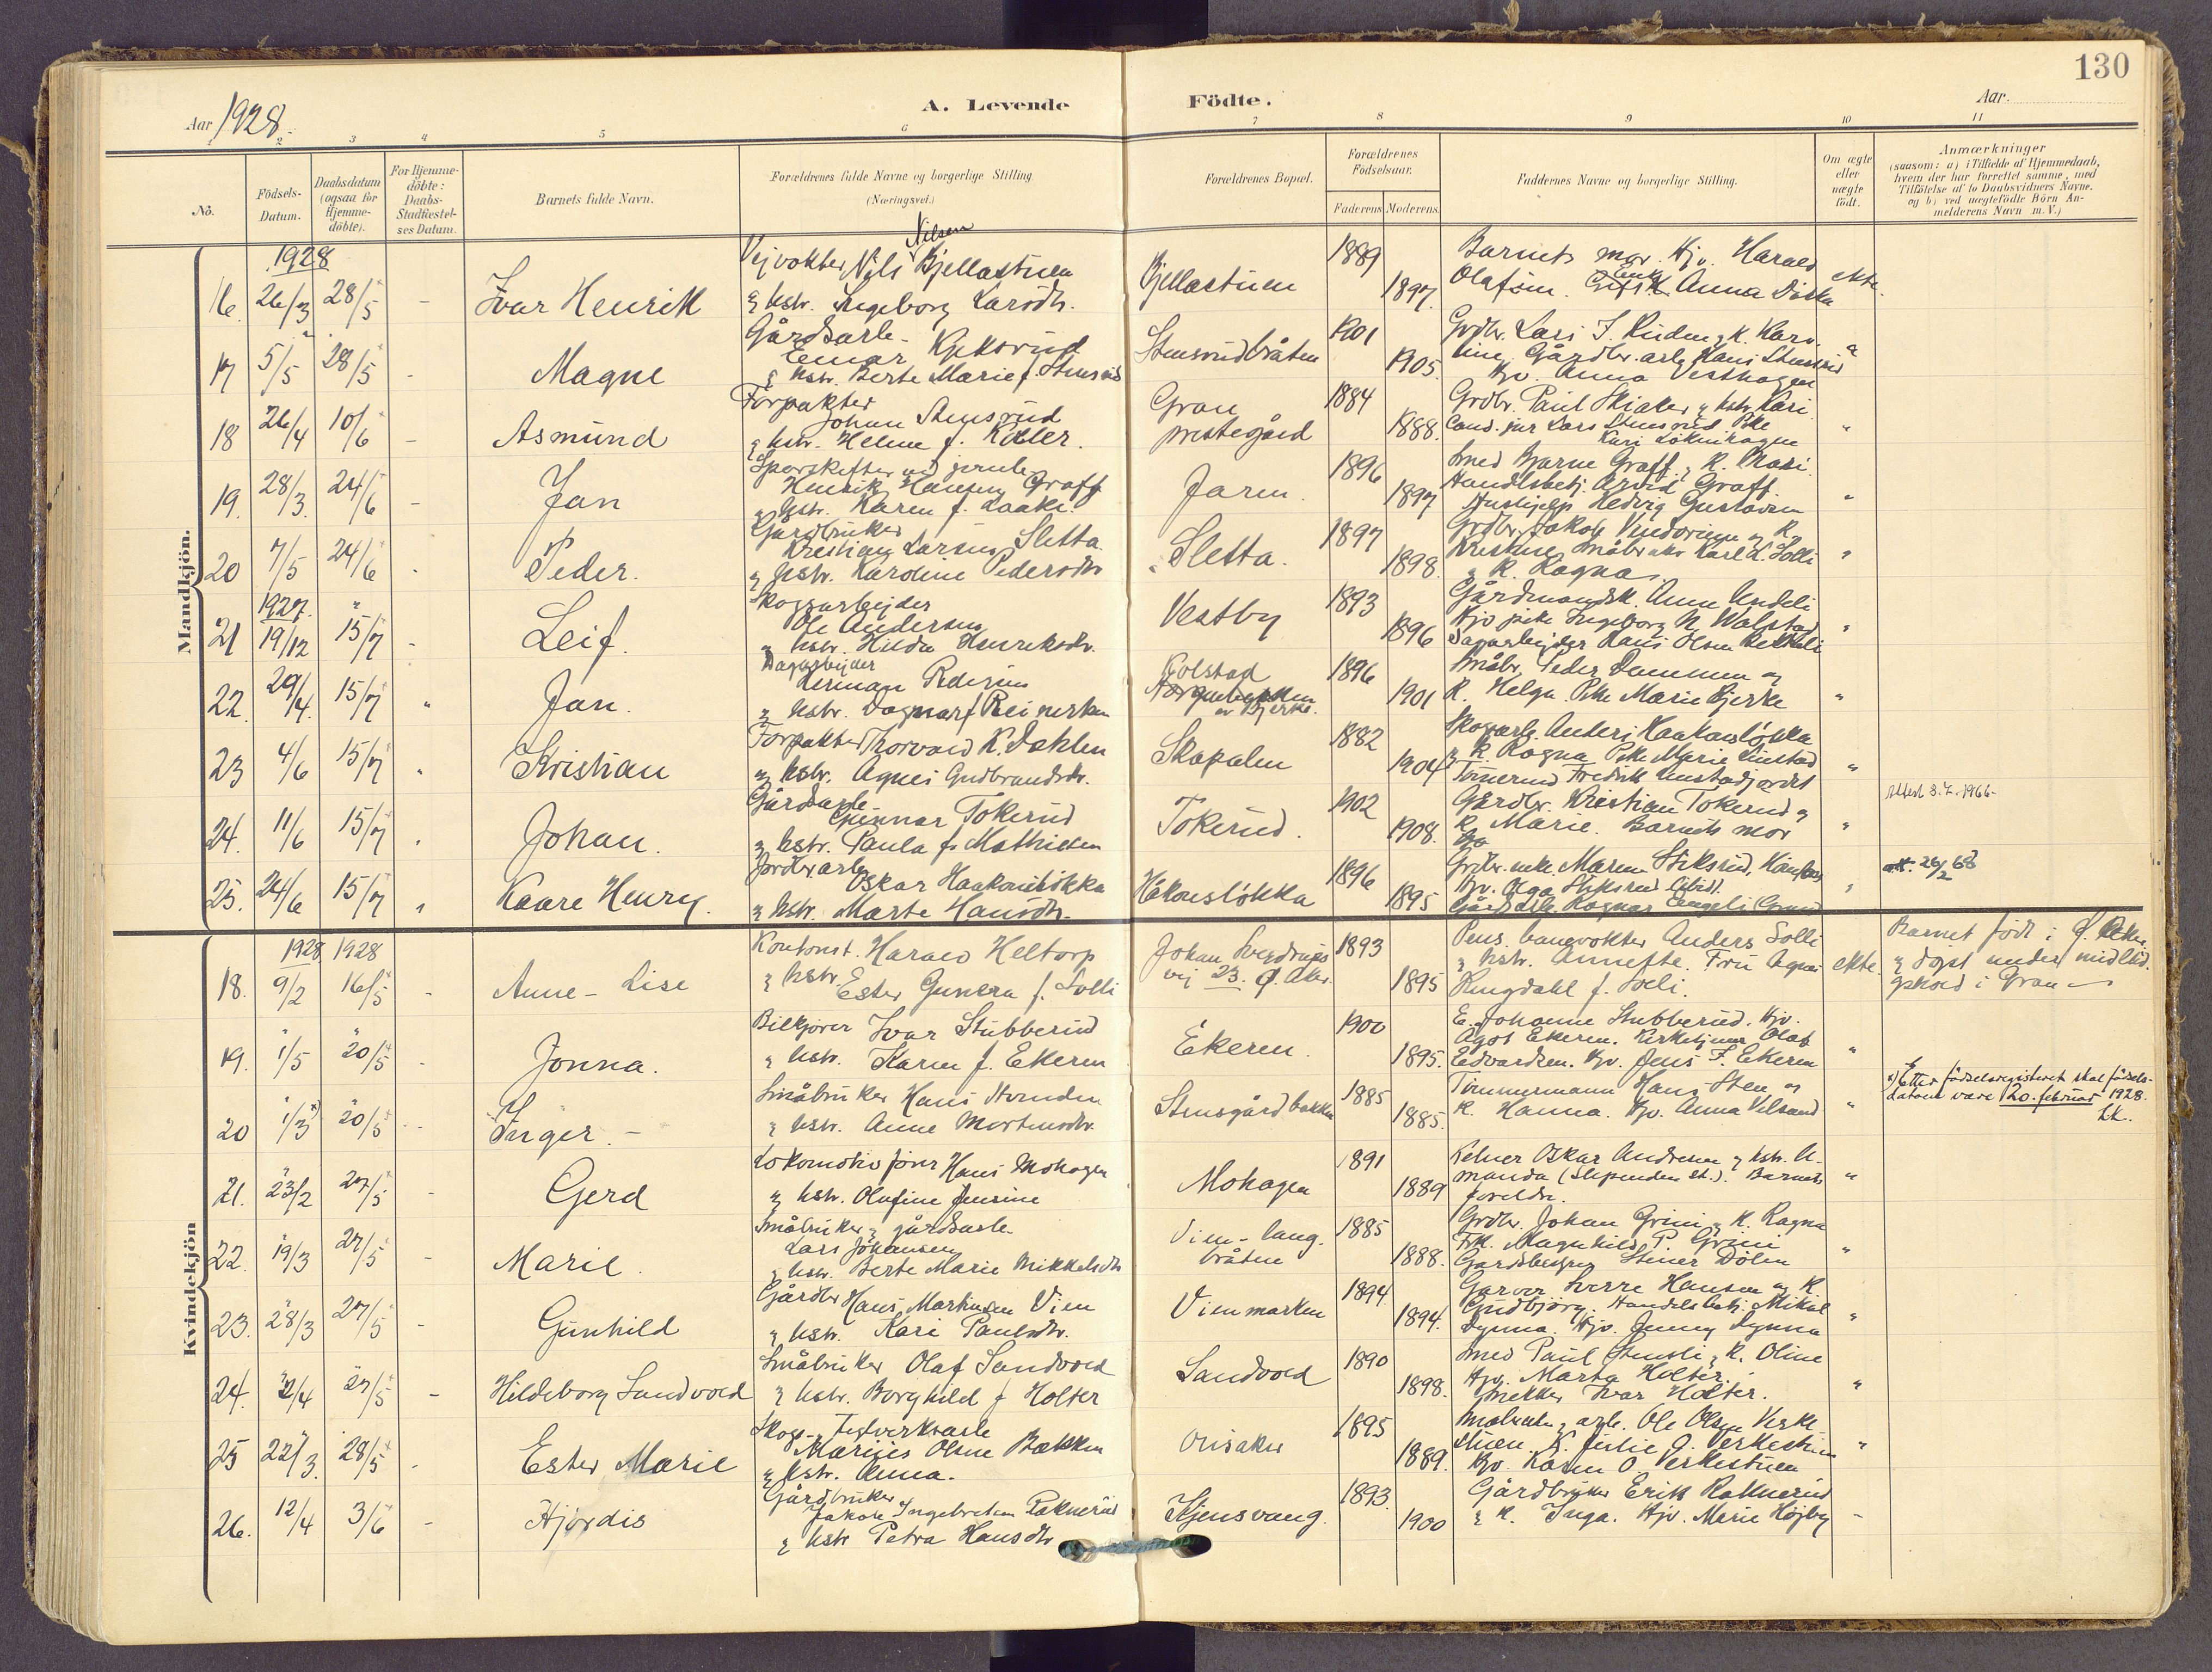 130
A. Levende Födte.
Aar 1928.
Aar.
1 2 3 4 5 6 7 8 9 10 11
No.
Födsels-Datum.
Daabsdatum (ogsaa for Hjemme-döbte).
For Hjemme-döbte: Daabs-Stadfæstel-ses Datum.
Barnets fulde Navn.
Forældrenes fulde Navne og borgerlige Stilling (Næringsvei.)
Forældrenes Bopæl.
Forældrenes Födselsaar.
Faderens Moderens.
Faddernes Navne og borgerlige Stilling.
Om ægte eller uægte födt.
Anmærkninger
(saasom: a) i Tilfælde af Hjemmedaab,
hvem der har forrettet samme, med
Tilföielse af to Daabsvidners Navne.
og b) ved uægtefödte Börn An-
melderens Navn m. V.)
Mandkjön.
1928
16. 26/3 28/5 - Ivar Henrik
Veivokter Nils Nilsen Bjellastuen
& hstr. Ingeborg Larsdtr.
Bjellastuen 1889 1897
Barnets mor. Hjv. Harald
Olafsen. Anna Diska
ekte.
17 5/5 28/5 - Magne
Gårdsarb.
Einar Kjeksrud
& hstr. Berte Marie f. Stensrud
Stensrudbråten 1901 1905.
Grdbr. Lars J. Ruden & K. Karo-
line. Gårdbr. arb. Hans Stensrud
Hjv. Anna Vesthagen
"
18 26/4 10/6 - Asmund
Forpakter
Johan Stensrud
& hstr. Helene f. Koller.
Gran
prestegård 1884 1888.
Grdbr. Paul Skiaker & hstr. Kari
Cand. jur Lars Stensrud Pike
Kari Løkenhagen
"
19. 28/3. 24/6 - Jan
Sporskifter ved jernb.
Henrik Hansen Graff
& hstr. Karen f. Laake.
Jaren. 1896 1897
Smed Bjarne Graff & K. Masi.
Handelsbetj. Arvid Graff.
Hushjelp Hedvig Gustavsen
"
20 7/5 24/6 - Peder.
Gårdbruker
Kristian Larsen Sletta
& hstr. Karoline Pedersdtr
Sletta. 1897 1898.
Grdbr. Jakob Vindorum & K.
Kristine Småbruker Karl L. Solli
& K. Ragna
"
1927.
21 19/12 15/7 - Leif.
Skogsarbejder
Ole Andersen
& hstr. Hilda Henriksdr.
Vestby 1893 1896
Gårdmandsk. Anne Undeli
Hjv pike Ingeborg N. Walstad
Dagarbejder Hans Olsen Bekkeli
"
22. 29/4. 15/7 " Jan.
Dagarbejder
Herman Pedersen
& hstr. Dagmar f. Reinerten
Kolstad
av Bjerke. 1896 1901
Småbr. Peder Dammen og
K. Helga. Pike Marie Bjerke
"
23 4/6 15/7 " Kristian
Forpakter Thorvald K. Dahlen
& hstr. Agnes Gudbrandsdr.
Skapalen 1882 1904
Skogsarb. Anders Haakonsløkka
& K. Ragna Pike Marie Linstad
Tømmermd Fredrik Linstadjordet
"
24. 11/6 15/7 " Johan.
Gårdsarb.
Gunnar Tokerud
& hstr. Paula f. Mathiesen
Tokerud. 1902 1908.
Gårdbr. Kristian Tokerud &
K. Marie. Barnets mor
"
Attest 3.7.1966-
25. 24/6 15/7 " Kaare Henry.
Jordbr.arb.
Oskar Haakonsløkka
& hstr. Marte Hansdtr.
Håkonsløkka 1896 1895
Grdbr. enke Maren Stiksrud,
Hjv. Olga Stiksrud
Gårdsarb. Ragnar Engeli Grand
"
att. 26/2 68
Kvindekjön
1928 1928
18. 9/2 16/5 - Anne-Lise
Kontorist. Harald Heltorp
& hstr. Ester Gunera f. Solli
Johan Sverdrups
vej 23. Ø. Aker. 1893 1895
Pens. banevokter Anders Solli
& hstr. Annette. Fru Agnes
Ringdahl f. Soli.
ekte.
Barnet født i Ø. Aker.
& døpt under midltid.
ophold i Gran
19. 1/5 20/5 - Jonna.
Bilkjører Ivar Stubberud
& hstr. Karen f. Ekeren
Ekeren. 1900 1895.
E. Johanne Stubberud. Hjv.
Agot Ekeren. Kirketjener Olaf
Edvardsen. Hjv. Jens F. Ekeren
"
20 1/3 x) 20/5 - Inger.-
Småbruker Hans Strunden
& hstr. Anne Mortensdtr.
Stensgårdbakken 1885 1885.
Tømmermann Hans Steen og
K. Hanna. Hjv. Anna Velsand
"
x) Etter fødselsregisteret skal fødsels-
datoen være 20. februar 1928.
LK.
21. 23/2 27/5 - Gerd
Lokomotivfører Hans Mohagen
& hstr. Olafine Jensine
Mohagen 1891 1889
Kelner Oskar Andresen & hstr. A-
manda (Stipenden st.). Barnets
foreldre.
"
22. 19/3 27/5 - Marie.
Småbruker & gårdsarb.
Lars Johansen
& hstr. Berte Marie Mikkelsdtr
Vien-lang-
bråten 1885 1888.
Grdbr. Johan Grini & K. Ragna
Frk. Magnhild P. Grini
Gårdsbestyrer Steiner Dölen
"
23. 28/3 27/5 - Gunhild
Gårdbr. Hans Martinsen Vien
& hstr. Kari Paulsdtr.
Vienmarken 1894 1894.
Garver Sverre Hansen og K.
Gudbjörg. Handelsbetj. Mikal
Dynna. Hjv. Jenny Dynna
"
24. 2/4 27/5 - Hildeborg Sandvold
Småbruker Olaf Sandvold
& hstr. Borghild f Holter
Sandvold 1890 1898.
Smed Paul Stensli & K. Oline
Hjv. Marta Holter.
Snekker Ivar Holter.
"
25 22/3. 28/5 - Ester Marie
Skogs- & teglverksarb
Marius Olsen Bakken
& hstr. Anna.
Onsaker 1895 1889.
Ole Olsen Verke-
stuen. K. Julie O. Verkestuen
Hjv. Karen O Verkestuen
"
26. 12/4 3/6 - Hjördis
Gårdbruker
Jakob Ingebretsen Raknerud
& hstr Petra Hansdtr
Kjensvang. 1893. 1900
Gårdbruker Erik Raknerud
& K. Inga. Hjv. Marie Højby
-